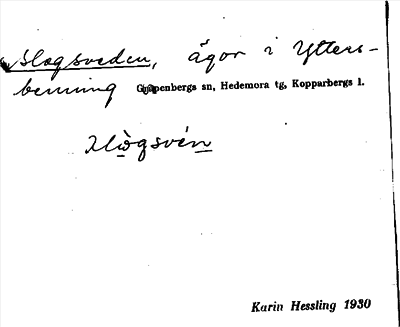 Slogsveden, ägor i Ytters-
benning Garpenbergs sn, Hedemora tg, Kopparbergs l.
Karin Hessling 1930